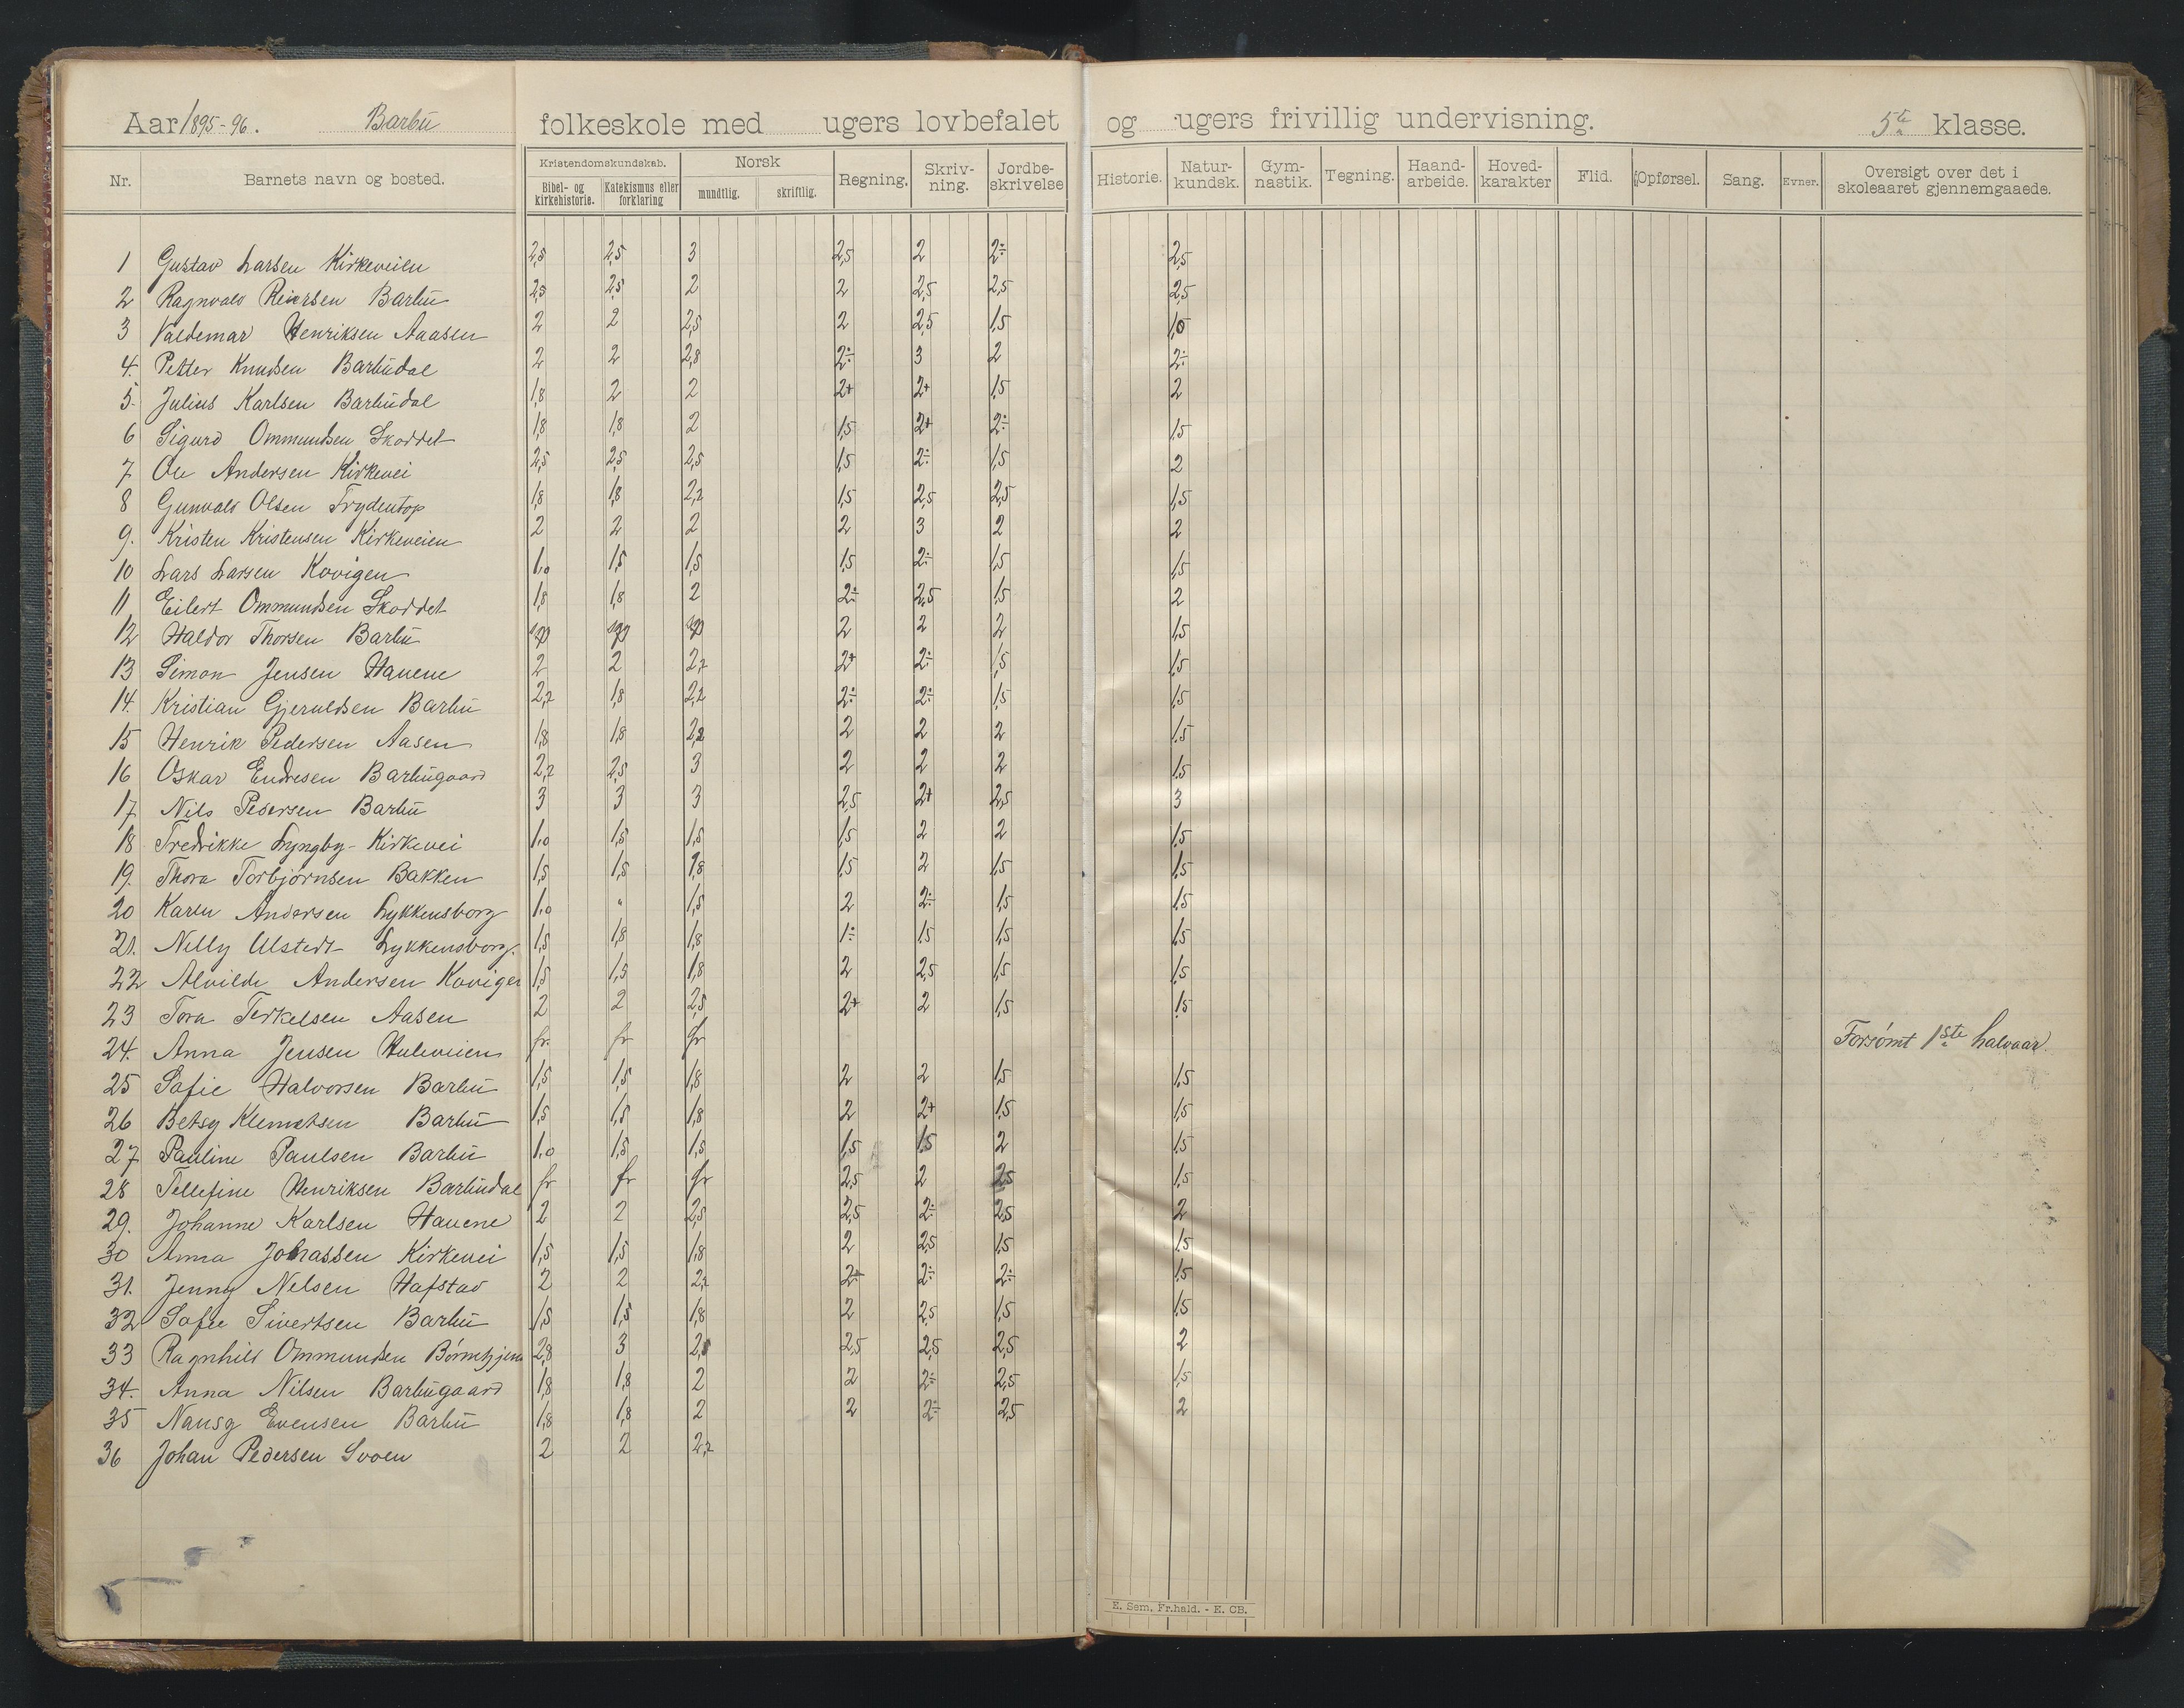 Aar 1895-96. Barbu folkeskole med ugers lovbefalet og ugers frivillig undervisning. 5te klasse.
Nr. Barnets navn og bosted. Kristendomskundskab. Bibel- og kirkehistorie. Katekismus eller forklaring Norsk mundtlig. skriftlig. Regning. Skriv-ning. Jordbe-skrivelse Historie. Natur-kundsk. Gym-nastik. Tegning. Haand-arbeide. Hoved-karakter Flid. Opførsel. Sang. Evner. Oversigt over det i skoleaaret gjennemgaaede.
1 Gustav Larsen Kirkeveien 2,5 2,5 3 2,5 2 2÷ 2,5
2 Ragnvald Reiersen Barbu 2,5 2,5 2 2 2,5 2,5 2,5
3 Valdemar Henriksen Aaasen 2 2 2,5 2 2,5 1,5 1,0
4. Petter Knudsen Barbudal 2 2 2,8 2÷ 3 2 2÷
5. Julius Karlsen Barbudal 1,8 2 2 2+ 2+ 1,5 2
6 Sigurd Ommundsen Skoddet 1,8 1,8 2 1,5 2+ 2÷ 1,5
7 Ole Andersen Kirkevei 2,5 2,5 2,5 1,5 2÷ 1,5 2
8 Gunvald Olsen Frydentop 1,8 1,8 2,2 1,5 2,5 2,5 1,5
9. Kristen Kristensen Kirkeveien 2 2 2 2 3 2 2
10 Lars Larsen Kovigen 1,0 1,5 1,5 1,5 2÷ 1,5 1,5
11 Eilert Ommundsen Skoddet 1,8 1,8 2 2÷ 2,5 1,5 2
12 Haldor Thorsen Barbu 2 2 2 1,5
13 Simon Jensen Hauene 2 2 2,2 2+ 2÷ 1,5 1,5
14. Kristian Gjeruldsen Barbu 2,2 1,8 2,2 2÷ 2÷ 1,5 1,5
15 Henrik Pedersen Aasen 1,8 1,8 2,2 2 2 2 1,5
16 Oskar Endresen Barbugaard 2,2 2,5 3 2 2 2 1,5
17 Nils Pedersen Barbu 3 3 3 2,5 2+ 2,5 3
18 Fredrikke Lyngby Kirkevei 1,0 1,5 1,5 1,5 2 2 1,5
19. Thora Torbjørnsen Bakken 1,5 1,5 1,8 1,5 2 1,5 1,5
20 Karen Andersen Lykkensborg 1,0 " 1,5 2 2÷ 1,5 1,5
21. Nelly Ulstedt Lykkensborg. 1,5 1,8 1,8 1÷ 1,5 1,5 1,5
22 Alvilde Andersen Kovigen 1,5 1,5 1,8 2 2,5 1,5 1,5
23 Tora Terkelsen Aasen 2 2 2,5 2+ 2 1,5 1,5
24. Anna Jensen Huleveien fr. fr fr Forsømt 1ste halvaar.
25 Sofie Halvorsen Barbu 1,5 1,5 1,8 2 2 1,5 1,5
26 Betsy Klemetsen Barbu 1,5 1,5 1,8 2 2+ 1,5 1,5
27 Pauline Paulsen Barbu 1,0 1,5 1,5 1,5 1,5 2 1,5
28 Tellefine Henriksen Barbudal fr fr fr 2,5 2 2,5 1,5
29. Johanne Karlsen Hauene 2 2 2,5 2,5 2÷ 2,5 2
30 Anna Johnassen Kirkevei 1,5 1,5 1,8 2 2,5 1,5 1,5
31. Jenny Nelsen Hafstad 2 2 2,2 2÷ 2÷ 2÷ 1,5
32 Sofie Sivertsen Barbu 1,5 1,5 1,8 2 2,5 1,5 1,5
33 Ragnhild Ommundsen 2,8 3 2,5 2,5 2,5 2
34. Anna Nilsen Barbugaard 1,8 1,8 2 2 2÷ 2,5 1,5
35 Nansy Evensen Barbu 1,8 1,8 2 2 2÷ 2,5 2
36 Johan Pedersen Svoen 2 2 2,2
E. Sem, Fr.hald. - E. CB.